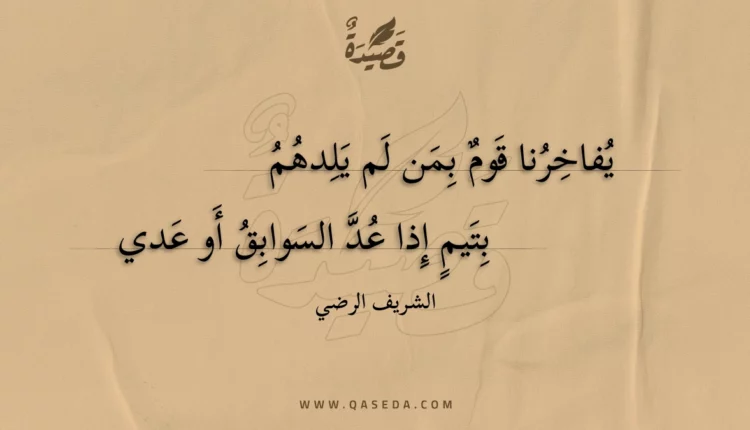 قَصِيدَةٌ
يُفاخِرُنا قَومٌ بِمَن لَم يَلِدهُمُ
بِتَيمٍ إِذا عُدَّ السَوابِقُ أَو عَدي
الشريف الرضي
WWW.QASEDA.COM